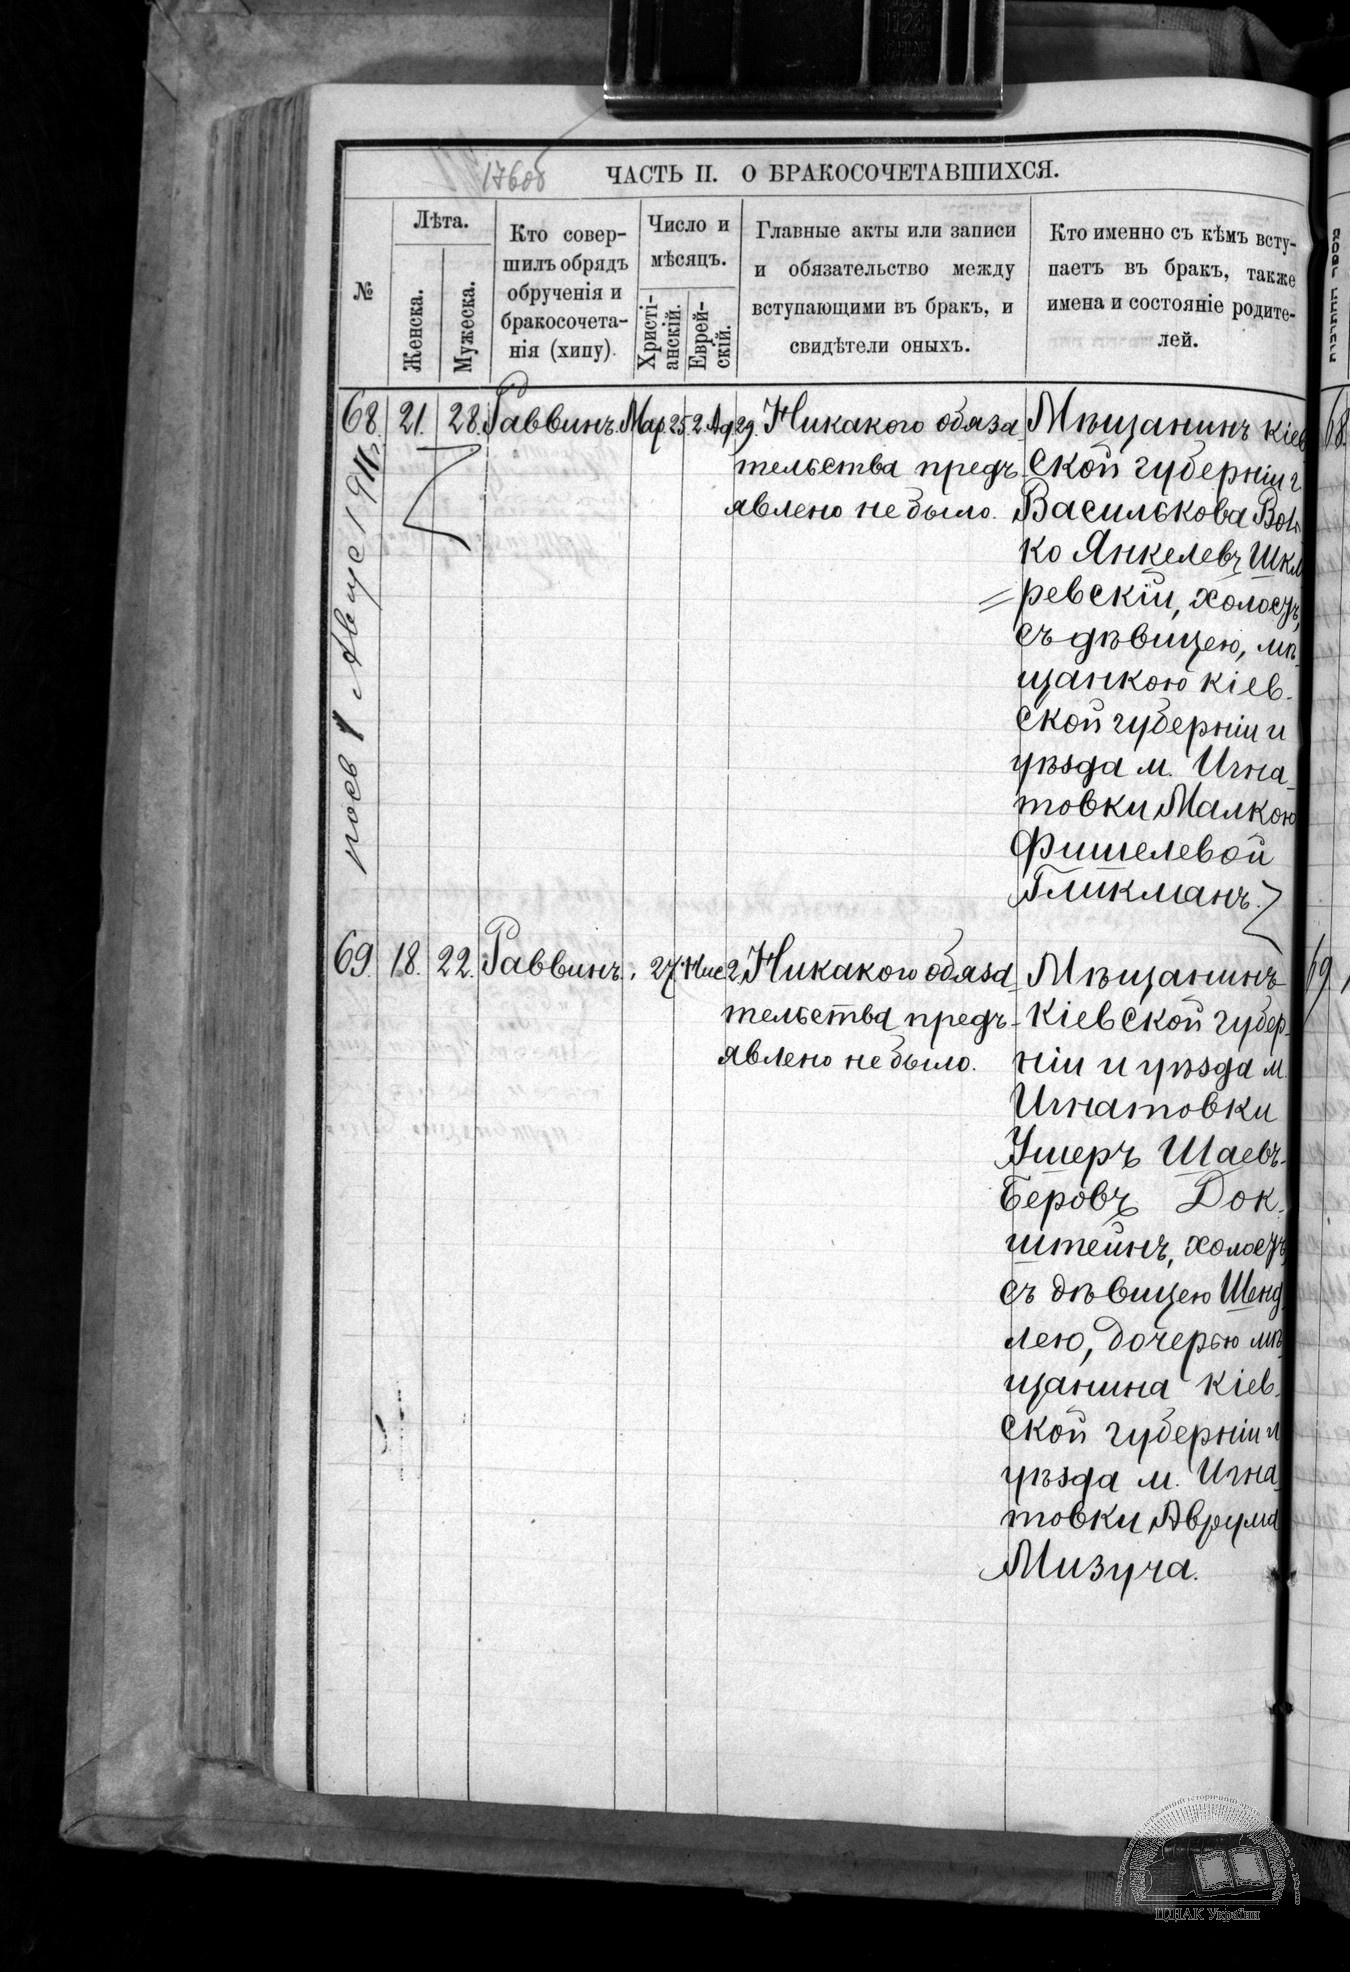 176об
ЧАСТЬ II. О БРАКОСОЧЕТАВШИХСЯ.
№
Лѣта.
Женска.
Мужеска.
Кто совер-
шилъ обрядъ
обрученія и
бракосочета-
нія (хипу).
Число и
мѣсяцъ.
Христі-
анскій.
Еврей-
скій.
Главные акты или записи
и обязательство между
вступающими въ бракъ, и
свидѣтели оныхъ.
Кто именно съ кѣмъ всту-
паетъ въ бракъ, также
имена и состояніе родите-
лей.
68. 21. 28. Раввинъ. Мар. 25. 2. Ад. 29.
Никакого обяза
тельства предъ
явлено не было.
Мѣщанинъ Кіев
ской губерніи г
Василькова Воль
ко Янкелевъ Шкля
ревскій, холостъ,
съ дѣвицею, мѣ-
щанкою Кіев-
ской губерніи и
уѣзда м. Игна-
товки Малкою
Фишелевой
Гликманъ.
Августа 1911г.
69. 18. 22. Раввинъ. 27. Нис 2.
Никакого обяза
тельства предъ-
явлено не было.
Мѣщанинъ
Кіевской губер-
ніи и уѣзда м.
Игнатовки
Ушеръ Шаевъ-
Беровъ Док-
штейнъ, холостъ
съ дѣвицею Шенд
лею, дочерью мѣ
щанина Кіев-
ской губерніи и
уѣзда м. Игна-
товки Аврума
Мизуча.
68
69
ЦДІАК України